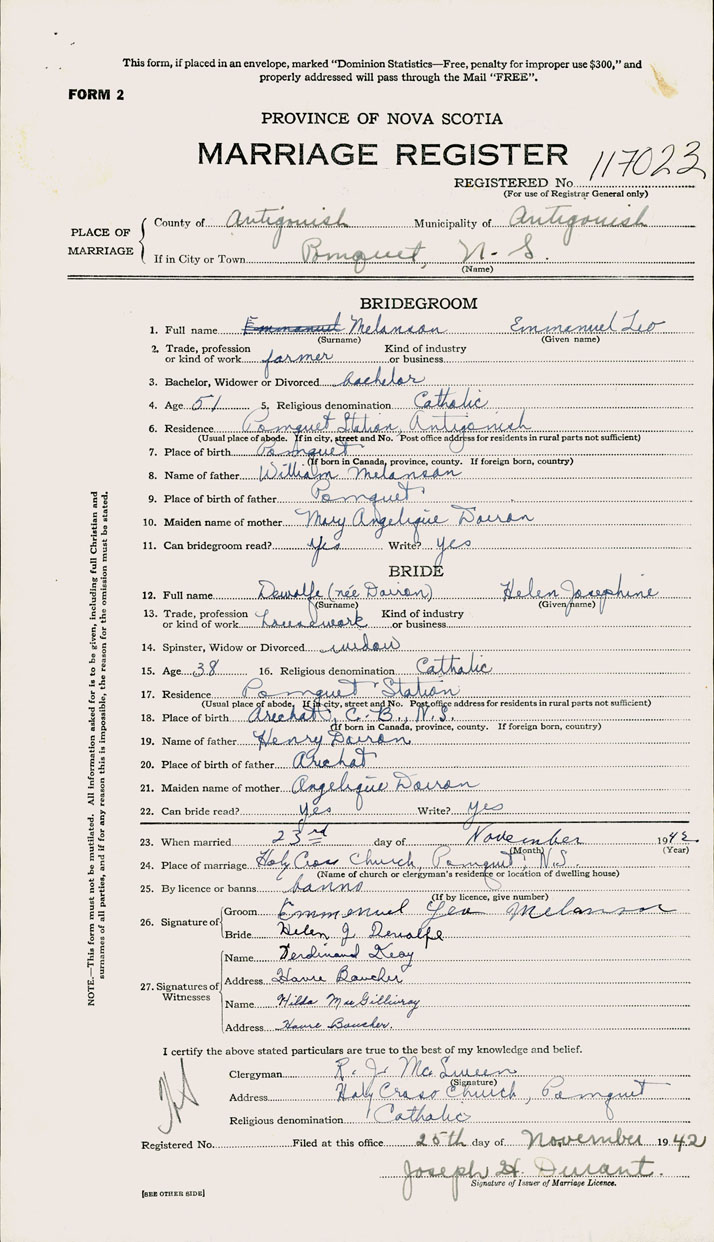 This form, if placed in an envelope, marked "Dominion Statistics—Free, penalty for improper use $300," and
properly addressed will pass through the Mail "FREE".
FORM 2
PROVINCE OF NOVA SCOTIA
MARRIAGE REGISTER
REGISTERED No. 117023
(For use of Registrar General only)
PLACE OF MARRIAGE
County of Antigonish Municipality of Antigonish
If in City or Town Pomquet, N. S.
(Name)
BRIDEGROOM
1. Full name Emmanuel Melanson Emmanuel Leo
(Surname) (Given name)
2. Trade, profession or kind of work farmer Kind of industry or business
3. Bachelor, Widower or Divorced bachelor
4. Age 51 5. Religious denomination Catholic
6. Residence Pomquet Station, Antigonish
(Usual place of abode. If in city, street and No. Post office address for residents in rural parts not sufficient)
7. Place of birth Pomquet
(If born in Canada, province, county. If foreign born, country)
8. Name of father William Melanson
9. Place of birth of father Pomquet
10. Maiden name of mother Mary Angelique Doiron
11. Can bridegroom read? Yes Write? yes
BRIDE
12. Full name Dewolfe (née Doiron) Helen Josephine
(Surname) (Given name)
13. Trade, profession or kind of work housework Kind of industry or business
14. Spinster, Widow or Divorced widow
15. Age 38 16. Religious denomination Catholic
17. Residence Pomquet Station
(Usual place of abode. If in city, street and No. Post office address for residents in rural parts not sufficient)
18. Place of birth Arichat, C. B., N.S.
(If born in Canada, province, county. If foreign born, country)
19. Name of father Henry Doiron
20. Place of birth of father Arichat
21. Maiden name of mother Angelique Doiron
22. Can bride read? yes Write? yes
23. When married 23rd day of November 1942
(Month) (Year)
24. Place of marriage Holy Cross Church, Pomquet, N.S.
(Name of church or clergyman's residence or location of dwelling house)
25. By licence or banns banns
(If by licence, give number)
26. Signature of Groom Emmenuel Leo Melanson
Bride Helen J. Dewolfe
27. Signatures of Witnesses
Name Ferdinand Deay
Address Havre Baucher
Name Hilda MacGillivray
Address Havre Baucher.
I certify the above stated particulars are true to the best of my knowledge and belief.
Clergyman R. J. MacSween
(Signature)
Address Holy Cross Church, Pomquet
Religious denomination Catholic
Registered No. Filed at this office 25th day of November 1942
Joseph H. Durant.
Signature of Issuer of Marriage Licence.
[SEE OTHER SIDE]
NOTE.—This form must not be mutilated. All information asked for is to be given, including full Christian and
surnames of all parties, and if for any reason this is impossible, the reason for the omission must be stated.